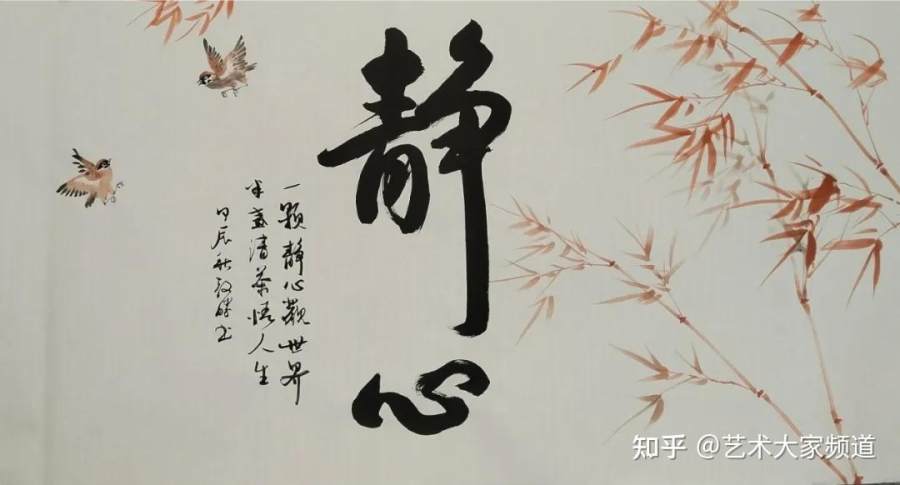 静心
一颗静心觀世界
半盏清茶悟人生
甲辰秋书
知乎 @艺术大家频道